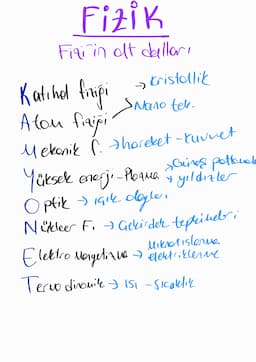 FİZİK
Fiziğin alt dalları
Katıhal fiziği → kristallik
Atom fiziği → Nano tek.
Mekanik f. → hareket - kuvvet
Yüksek enerji - Plazma → Güneş patlamaları
→ yıldızlar
Optik → ışık olayları
Nükleer F. → Çekirdek tepkimeleri
Elektro Manyetizma → Mıknatıslanma
elektriklenme
Termodinamik → ısı - sıcaklık